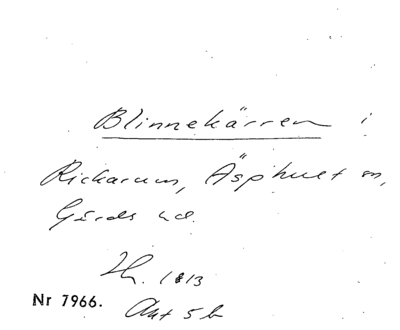 Blinnekärren i
Rickarum, Äsphult sn,
Gärds hd.
1813
Nr 7966.
Akt 5 b